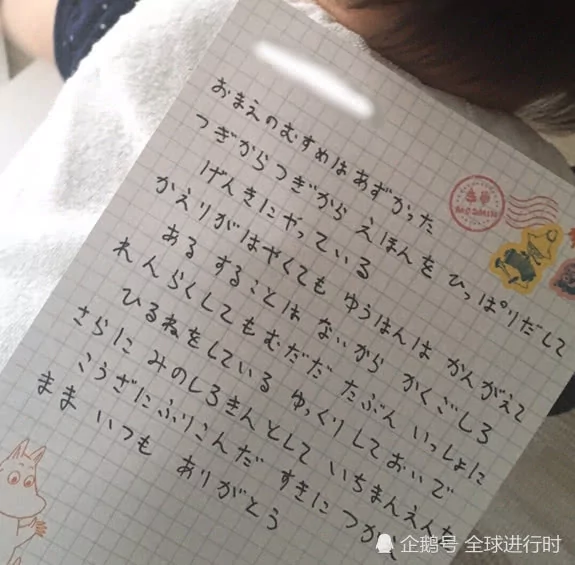 おまえのむすめはあずかった
つぎからつぎから えほんを ひっぱりだして
げんきにやっている
かえりがはやくても ゆうはんは かんがえて
ある することは ないから かくごしろ
れんらくしてもむだだ たぶん いっしょに
ひるねをしている ゆっくりしておいで
さらに みのしろきんとして いちまんえんを
こうざにふりこんだ すきに つかえ
まま いつも ありがとう
企鹅号 全球进行时